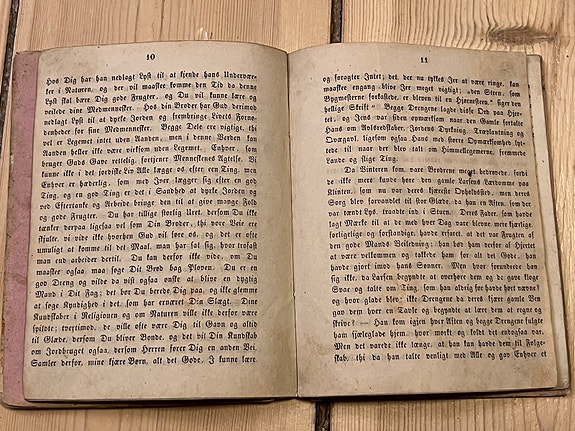 10
Hos Dig har han nedlagt Lyst til at kjende hans Undervær-
ker i Naturen, og der vil maaske komme den Tid da denne
Lyst skal bære Dig gode Frugter, og Du vil kunne lære og
veilede dine Medmennesker. Hos din Broder har Gud derimod
nedlagt Lyst til at dyrke Jorden og frembringe Livets Forno-
denheder for sine Medmennesker. Begge Dele ere vigtige, thi
vel er Legemet intet uden Aanden, men i denne Verden kan
Aanden heller ikke være virksom uden Legemet. Enhver, som
bruger Guds Gave rettelig, fortjener Menneskenes Agtelse. Vi
kunne ikke i det jordiske Liv Alle lægge os efter een Ting, men
Enhver er hæderlig, som med Iver lægger sig efter en god
Ting, og en god Ting er det i Sandhed at dyrke Jorden og
ved Eftertanke og Arbeide bringe den til at give mange Fold
og gode Frugter. Du har tillige storlig Uret, dersom Du ikke
tænker derpaa ligesaa vel som Din Broder, thi vore Veie ere
skjulte, vi vide ikke hvorhen Gud vil føre os, og det er ofte
umuligt at komme til det Maal, man har sat sig, hvor trofast
man end arbeider dertil. Du kan derfor ikke vide, om Du
maaskee ogsaa maa søge Dit Brød bag Ploven. Du er en
god Dreng og vilde da vist ogsaa ønske at blive en dygtig
Mand i Dit Fag; det bør Du berede Dig paa, og ikke glemme
at søge Kyndighed i det, som har ernæret Din Slægt. Dine
Kundskaber i Religionen og om Naturen ville ikke derfor være
spildte; tvertimod, de ville ofte være Dig til Gavn og altid
til Glæde, dersom Du bliver Bonde, og det vil Din Kundskab
om Jordbruget ogsaa, dersom Herren fører Dig en anden Vei.
Samler derfor, mine kjære Børn, alt det Gode, I kunne lære
11
og foragter Intet; det, der nu tykkes Jer at være ringe, kan
maaskee engang blive Jer meget vigtigt; „den Steen, som
Bygmesterne forkastede, er bleven til en Hjørnesteen,“ siger den
hellige Skrift“. Begge Drengene lagde disse Ord paa Hjer-
tet, og Jens var siden opmærksom naar den Gamle fortalte
Hans om Holsedskaber, Jordens Dyrkning, Træplantning og
Qvægavl, ligesom ogsaa Hans med større Opmærksomhed lyt-
tede til naar der blev talt om Himmellegemerne, fremmede
Lande og slige Ting.
Da Vinteren kom, vare Brødrene meget bedrøvede, fordi
de ikke mere kunde høre den gamle Larsens Lærdomme paa
Klinten, som nu var deres kjæreste Opholdssted, men deres
Sorg blev forvandlet til stor Glæde, da han en Aften, som der
var tændt Lys, traadte ind i Stuen. Deres Fader, som havde
lagt Mærke til at de med hver Dag vare blevne mere kjærlige,
fortrolige og forstandige, havde erfaret, at det var Frugten af
den gode Mands Veiledning; han bød ham derfor af Hjertet
at være velkommen og takkede ham for alt det Gode, han
havde gjort imod hans Sønner. Men hvor forundrede bøn
sig ikke, da Larsen begyndte at overhøre dem og de gave kloge
Svar og talte om Ting, som han aldrig før havde hørt nævne?
og hvor glade blev ikke Drengene da deres kjære gamle Ven
gav dem hver en Tavle og begyndte at lære dem at regne og
skrive? — Han kom igjen hver Aften og begge Drengene fulgte
ham sjæleglade hjem, hvor mørkt og koldt det endogsaa var.
Men det varede ikke længe, at han kun havde dem til Følge-
skab, thi da han talte venligt med Alle og gav Enhver et